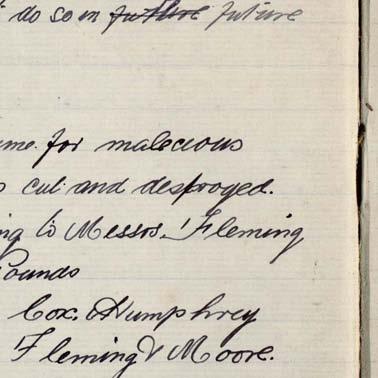 do so in future future
for malecious
cut and destroyed.
to Messrs. Fleming
Pounds
Cox. Humphrey
Fleming & Moore.